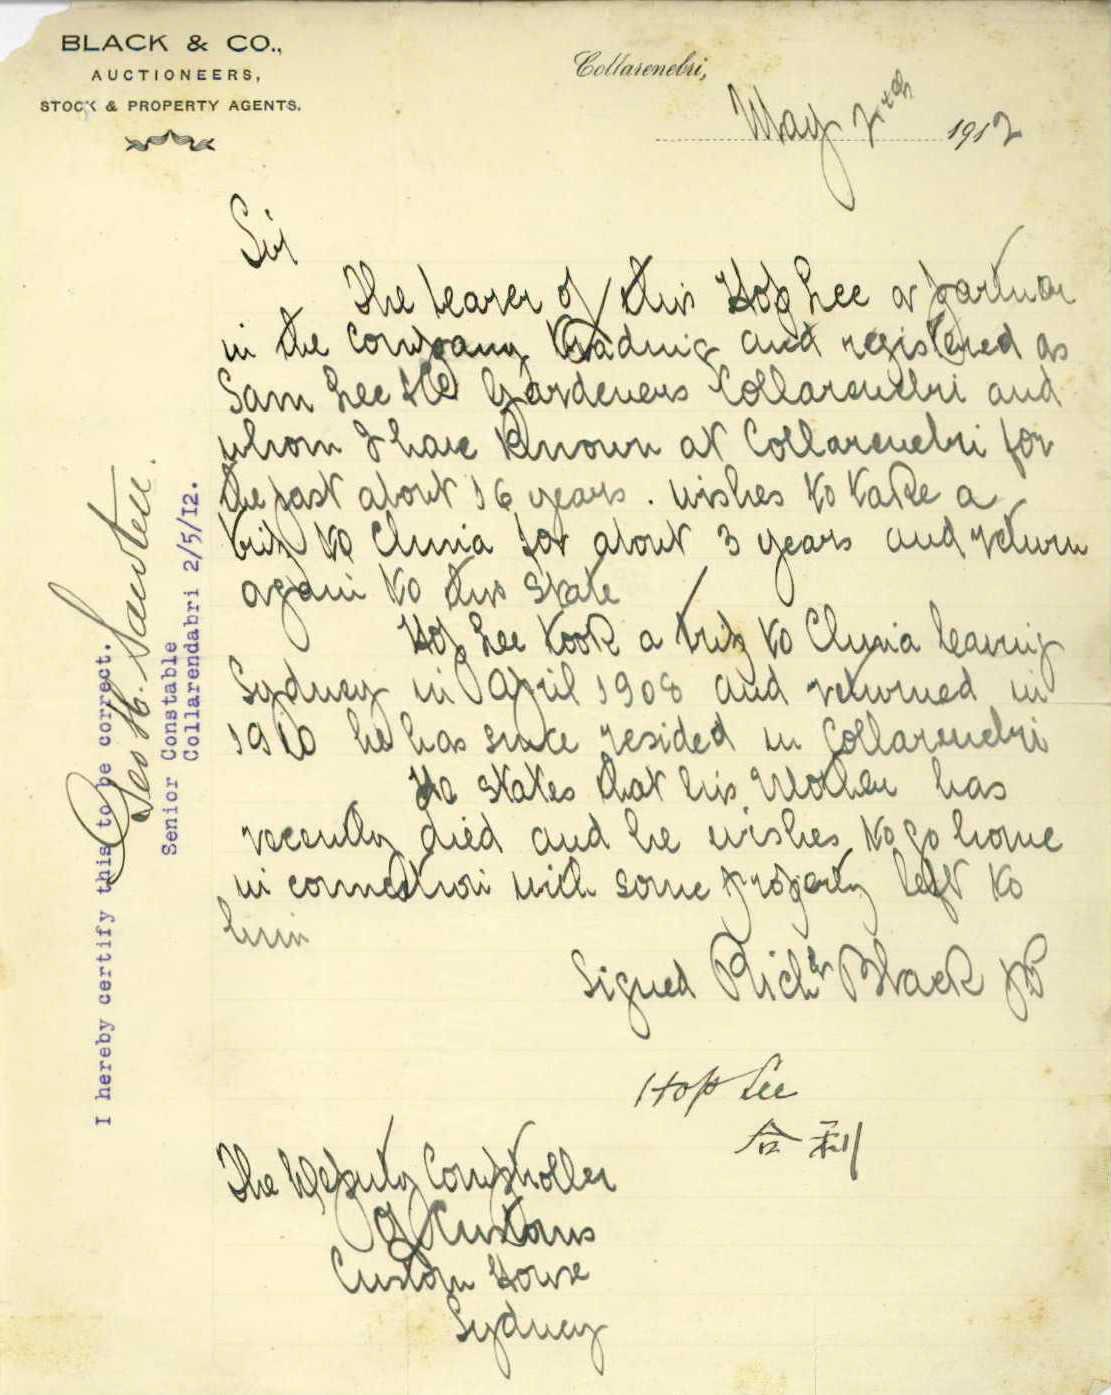 BLACK & CO.,
AUCTIONEERS,
STOCK & PROPERTY AGENTS.
Collarenebri,
May 2nd 1912
Sir
The bearer of this Hop Lee a partner
in the company trading and registered as
Sam Lee & Co Gardeners Collarenebri and
whom I have known at Collarenebri for
the past about 16 years. wishes to take a
trip to China for about 3 years and return
again to this State
Hop Lee took a trip to China leaving
Sydney in April 1908 and returned in
1910 he has since resided in Collarenebri
He states that his Mother has
recently died and he wishes to go home
in connection with some property left to
him
Signed Richd Black JP
Hop Lee
合利
The Deputy Comptroller
of Customs
Custom House
Sydney
I hereby certify this to be correct.
Geo H. Sawtell.
Senior Constable
Collarendabri 2/5/12.